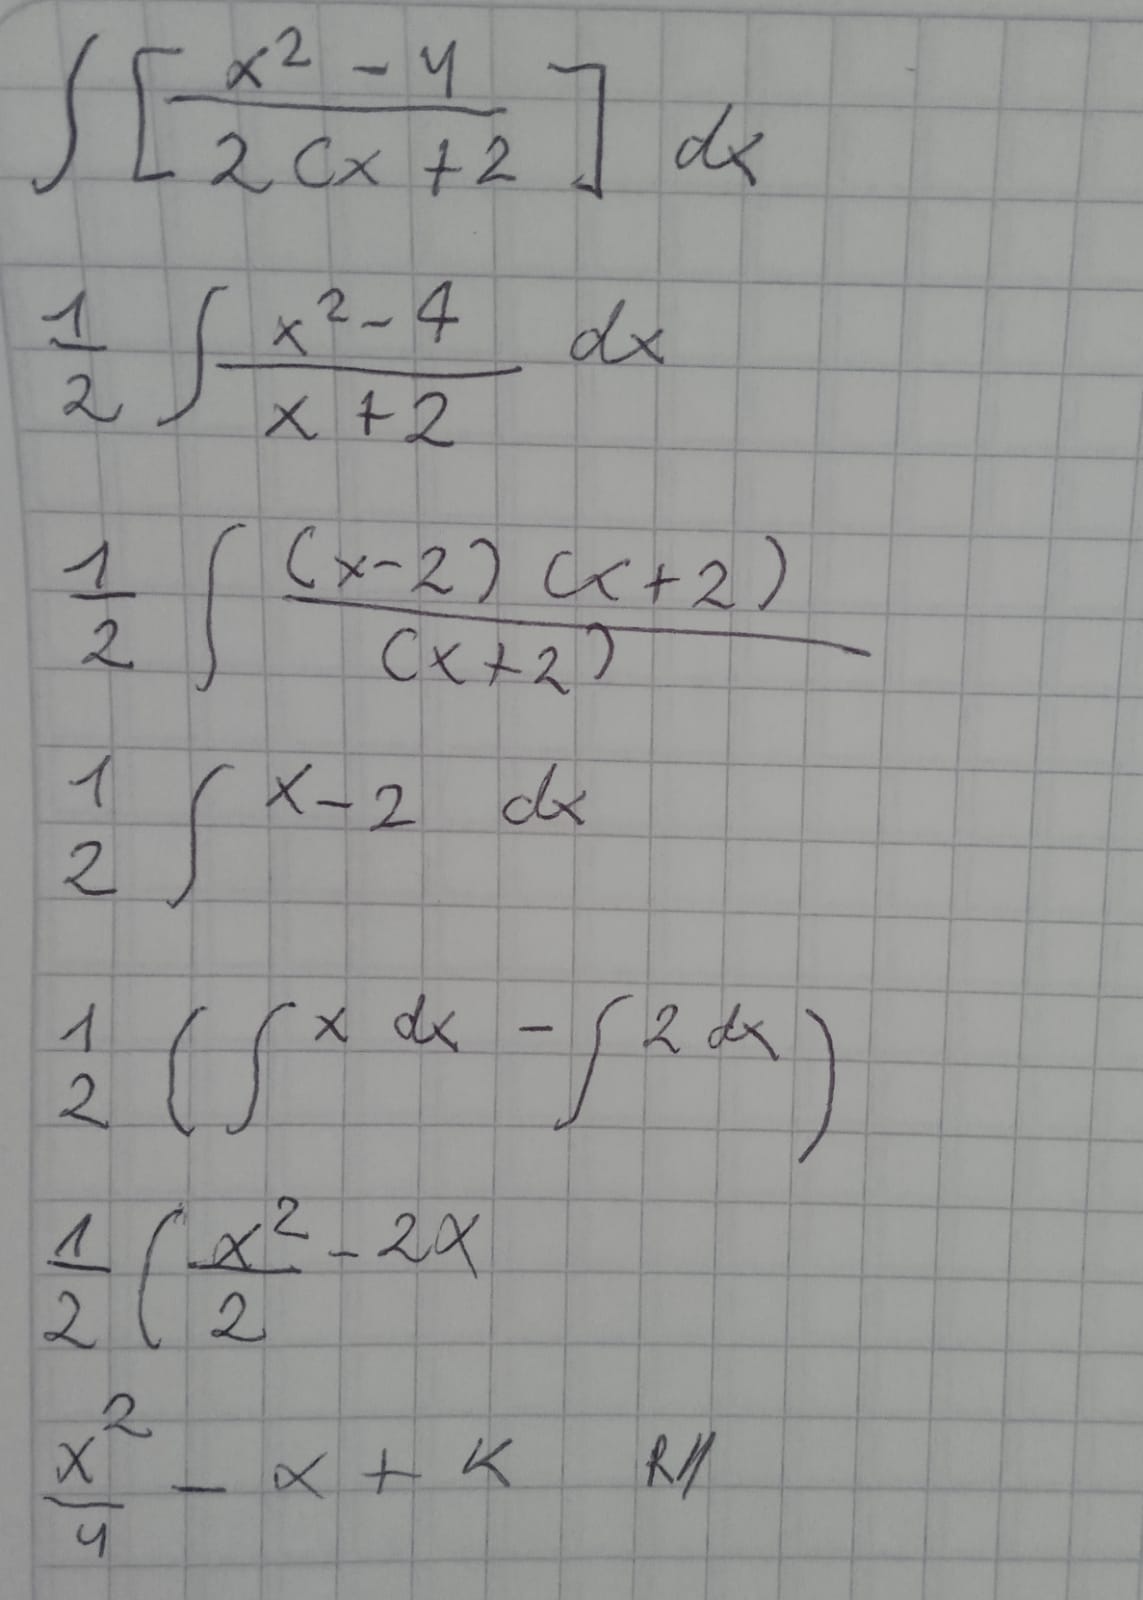 ∫ [ x² - 4 / 2(x + 2 ] dx
1/2 ∫ x² - 4 / x + 2 dx
1/2 ∫ (x-2) (x+2) / (x+2)
1/2 ∫ x-2 dx
1/2 ( ∫ x dx - ∫ 2 dx )
1/2 ( x²/2 - 2x
x²/4 - x + K R//